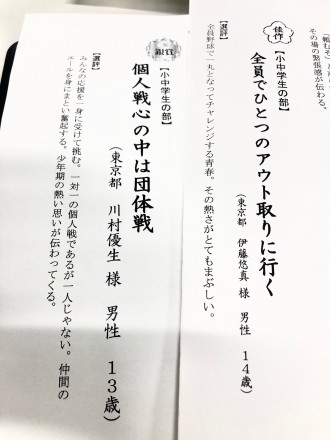 その場の緊張感が伝わる。
佳作
【小中学生の部】
全員でひとつのアウト取りに行く
（東京都　伊藤悠真 様　男性　14歳）
【選評】
全員野球で一丸となってチャレンジする青春。その熱さがとてもまぶしい。
【小中学生の部】
個人戦心の中は団体戦
（東京都　川村優生 様　男性　13歳）
【選評】
みんなの応援を一身に受けて挑む。一対一の個人戦であるが一人じゃない。仲間の
エールを身にまとい奮起する。少年期の熱い思いが伝わってくる。